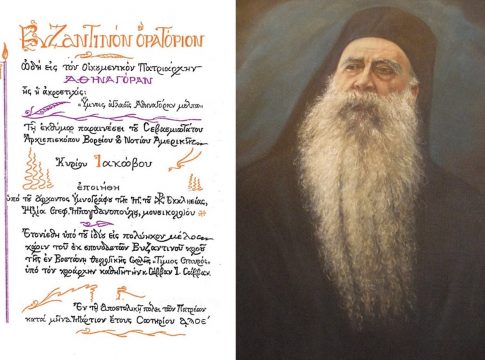 Βυζαντινὸν Ὁρατόριον
ᾠδὴ εἰς τὸν Οἰκουμενικὸν Πατριάρχην
ΑΘΗΝΑΓΟΡΑΝ
ἧς ἡ ἀκροστιχίς:
Τῇ ἐκθύμῳ παραινέσει τοῦ Σεβασμιωτάτου
Ἀρχιεπισκόπου Βορείου & Νοτίου Ἀμερικῆς
Κυρίου Ἰακώβου
ἐποιήθη
ὑπὸ τοῦ ἄρχοντος Ὑμνογράφου τῆς Ἐκκλησίας,
Ἠλία Στεφ. μουσικολόγου
Ἐτονίσθη ὑπὸ τοῦ ἰδίου εἰς πολύηχον μέλος
χάριν τοῦ ἐκ σπουδαστῶν Βυζαντινοῦ χοροῦ
τῆς ἐν Βοστώνῃ Θεολογικῆς Σχολῆς "Τίμιος Σταυρός",
ὑπὸ τὸν χοράρχην καθηγητὴν κ. Σάββαν Ι. Σάββαν.
Ἐν τῇ ἀποστολικῇ πόλει τῶν Πατρέων
κατὰ μῆνα Μάρτιον ἔτους Σωτηρίου